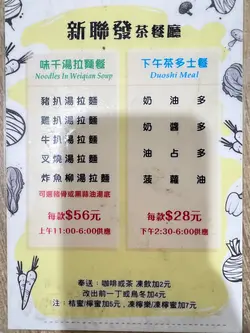 新聯發茶餐廳
味千湯拉麵餐
Noodles In Weiqian Soup
豬扒湯拉麵
雞扒湯拉麵
牛扒湯拉麵
叉燒湯拉麵
炸魚柳湯拉麵
可選豬骨或黑蒜油湯底
每款$56元
上午11:00-6:00供應
下午茶多士餐
Duoshi Meal
奶油多
奶醬多
油占多
菠蘿油
每款$28元
下午2:30-6:00供應
奉送:咖啡或茶 凍飲加2元
改出前一丁或烏冬加4元
注:桔蜜/檸蜜加5元,凍檸樂/凍檸蜜加7元